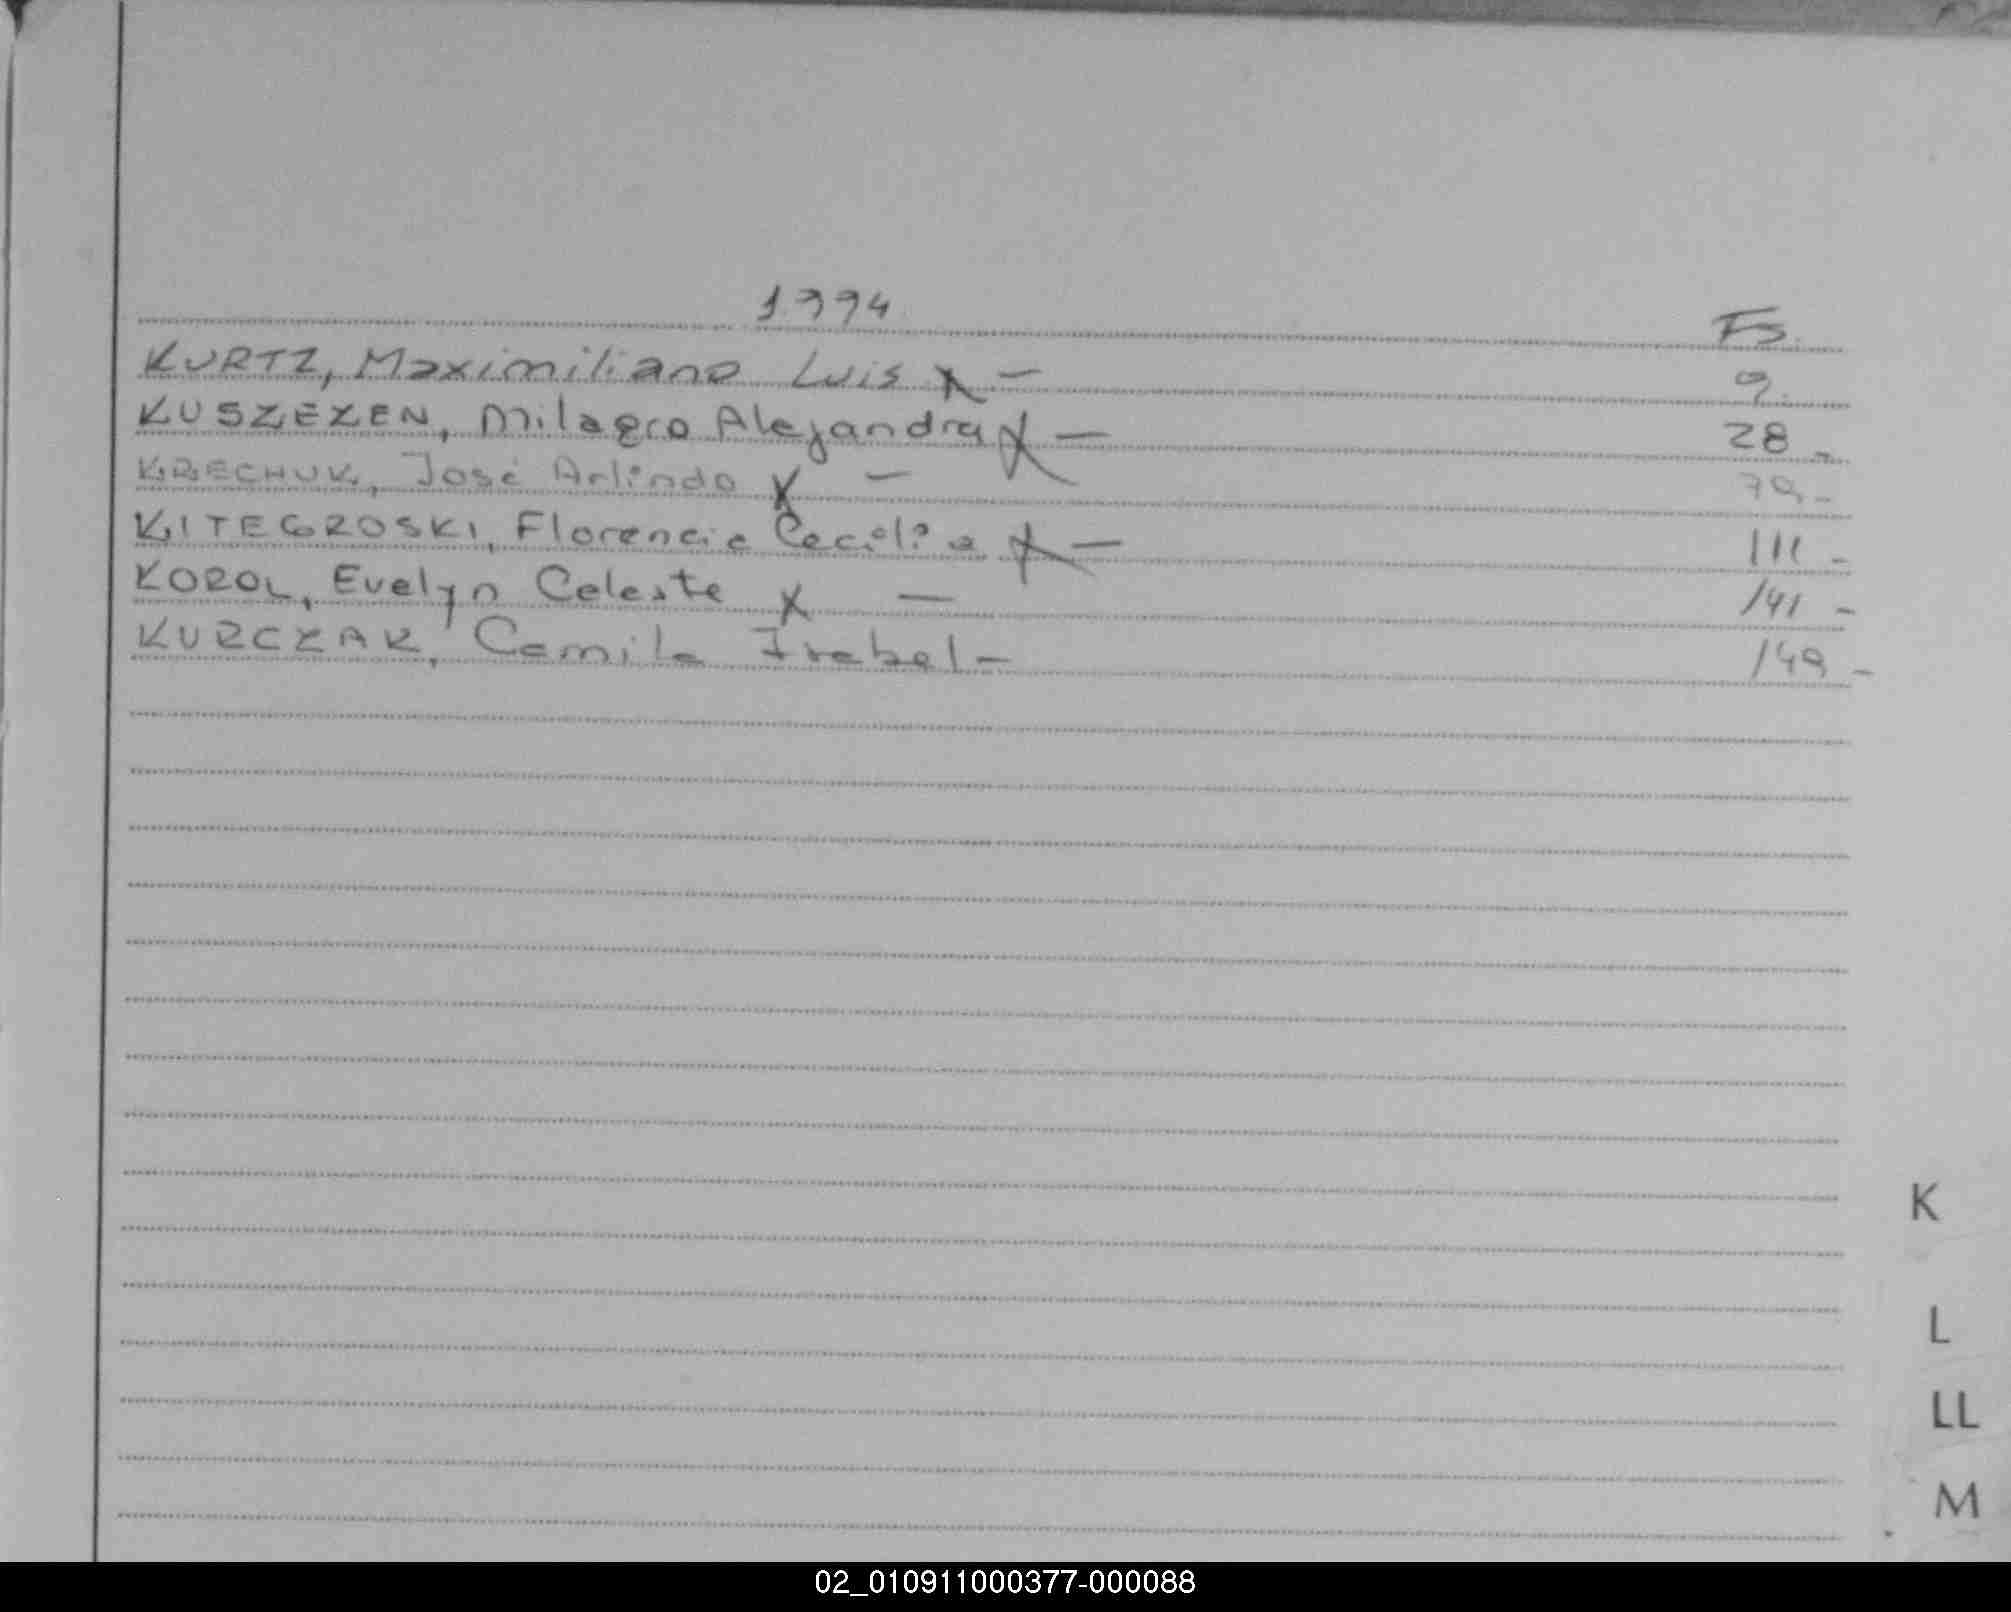 1994
Fs.
KURTZ, Maximiliano Luis x — 9.
KUSZEZEN, Milagro Alejandra x — 28 -
KRECHUK, José Arlindo x — 79 -
KITEGROSKI, Florencia Cecilia x — 111 -
KOROL, Evelyn Celeste x — 141 -
KURCZAK, Camila Isabel - 149 -
K
L
LL
M
02_010911000377-000088